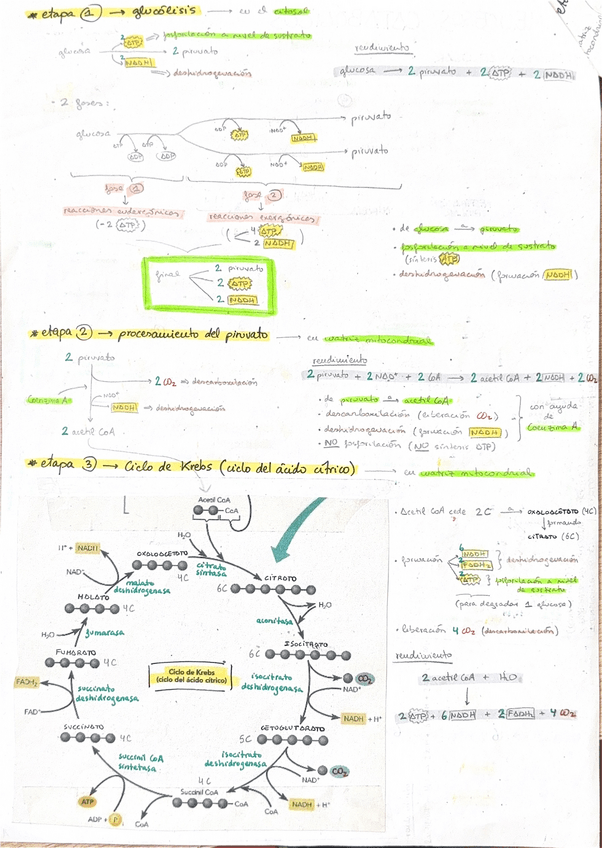 * etapa 1 → glucólisis → en el citosol
2 ATP → fosforilación a nivel de sustrato
glucosa → 2 piruvato
2 NADH → deshidrogenación
rendimiento
glucosa → 2 piruvato + 2 ATP + 2 NADH
· 2 fases:
glucosa
ATP ADP ATP ADP
ADP ATP NAD⁺ NADH → piruvato
ADP ATP NAD⁺ NADH → piruvato
fase 1
fase 2
reacciones endergónicas
(-2 ATP)
reacciones exergónicas
4 ATP
2 NADH
final
2 piruvato
2 ATP
2 NADH
· de glucosa a → piruvato
· fosforilación a nivel de sustrato
(síntesis ATP)
· deshidrogenación (formación NADH)
* etapa 2 → procesamiento del piruvato → en matriz mitocondrial
2 piruvato
2 CO₂ → descarboxilación
Coenzima A
NAD⁺
NADH → deshidrogenación
2 acetil CoA
rendimiento
2 piruvato + 2 NAD⁺ + 2 CoA → 2 acetil CoA + 2 NADH + 2 CO₂
· de piruvato a → acetil CoA
· descarboxilación (liberación CO₂)
· deshidrogenación (formación NADH)
· NO fosforilación (NO síntesis ATP)
con ayuda
de
Coenzima A
* etapa 3 → Ciclo de Krebs (ciclo del ácido cítrico) → en matriz mitocondrial
Acetil CoA
CoA
H₂O
H⁺ + NADH
NAD⁺
OXALOACETATO
4C
citrato
sintasa
CITRATO
6C
malato
deshidrogenasa
MALATO
4C
H₂O
aconitasa
H₂O
fumarasa
ISOCITRATO
6C
FUMARATO
4C
Ciclo de Krebs
(ciclo del ácido cítrico)
isocitrato
deshidrogenasa
CO₂
NAD⁺
NADH + H⁺
FADH₂
FAD⁺
succinato
deshidrogenasa
SUCCINATO
4C
CETOGLUTARATO
5C
succinil CoA
sintetasa
isocitrato
deshidrogenasa
CO₂
NAD⁺
4C
Succinil CoA
CoA
CoA
NADH + H⁺
ATP
ADP + P
CoA
· Acetil CoA cede 2C a → OXALOACETATO (4C)
formando
CITRATO (6C)
· formación
6 NADH
2 FADH₂
deshidrogenación
2 ATP
fosforilación a nivel
de sustrato
(para degradar 1 glucosa)
· liberación 4 CO₂ (descarboxilación)
rendimiento
2 acetil CoA + H₂O
2 ATP + 6 NADH + 2 FADH₂ + 4 CO₂